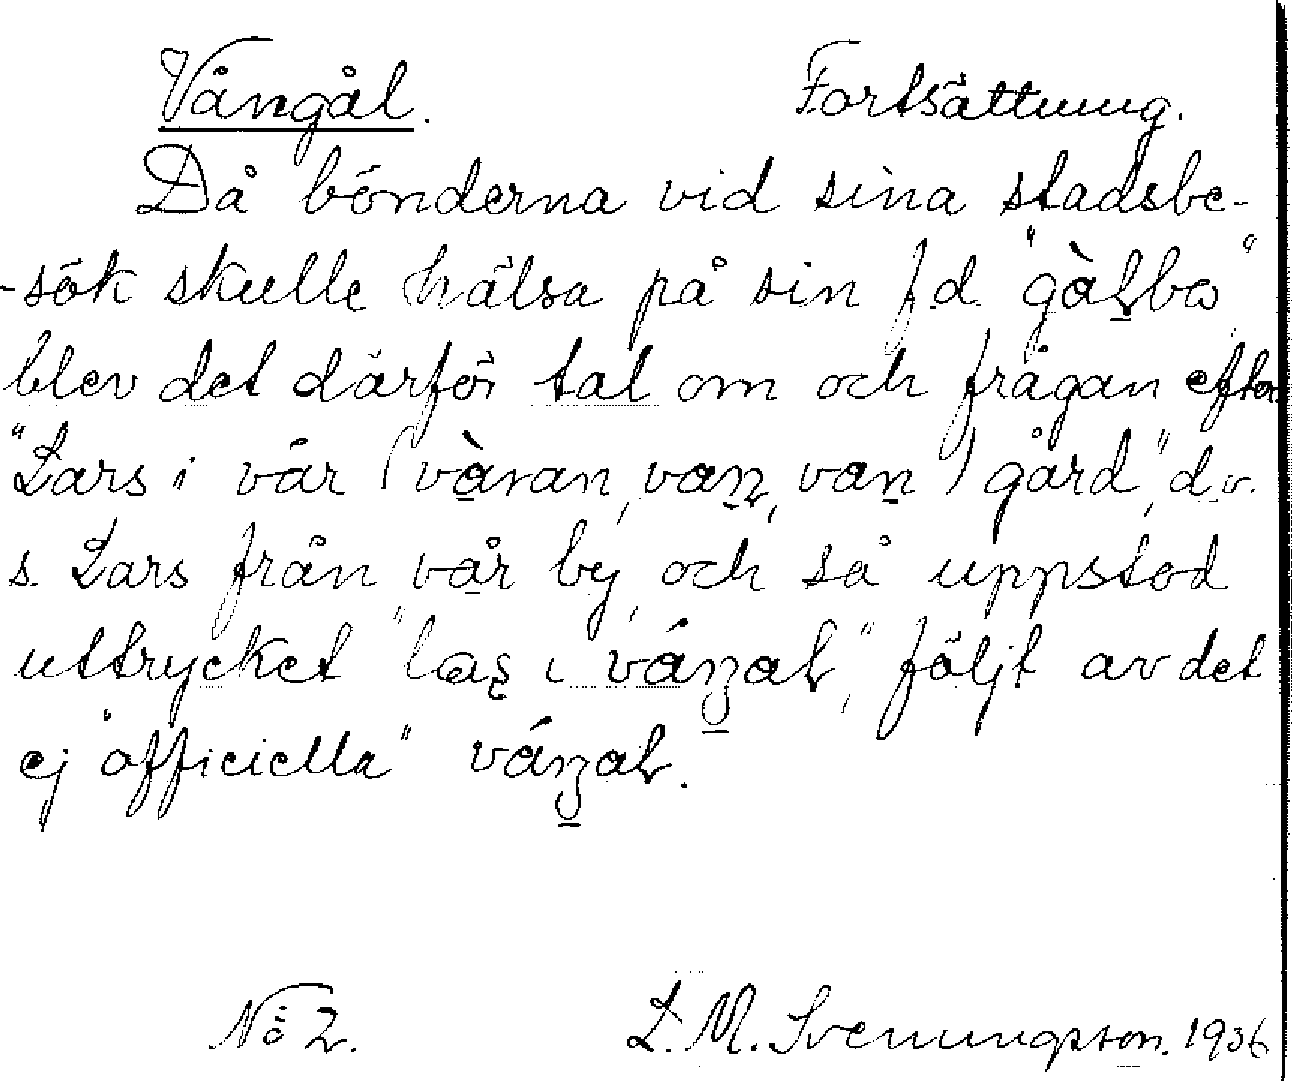 Vångål. Fortsättning.
Då bönderna vid sina stadsbe-
-sök skulle hälsa på sin f.d. "gàḷbo"
blev det därför tal om och frågan efter
"Lars i vår (vàran, van, van) gård," d.v.
s. Lars från vår by, och så uppstod
uttrycket "las i váŋal," följt av det
ej "officiella" váŋal.
No 2. L. M. Svenungsson. 1936